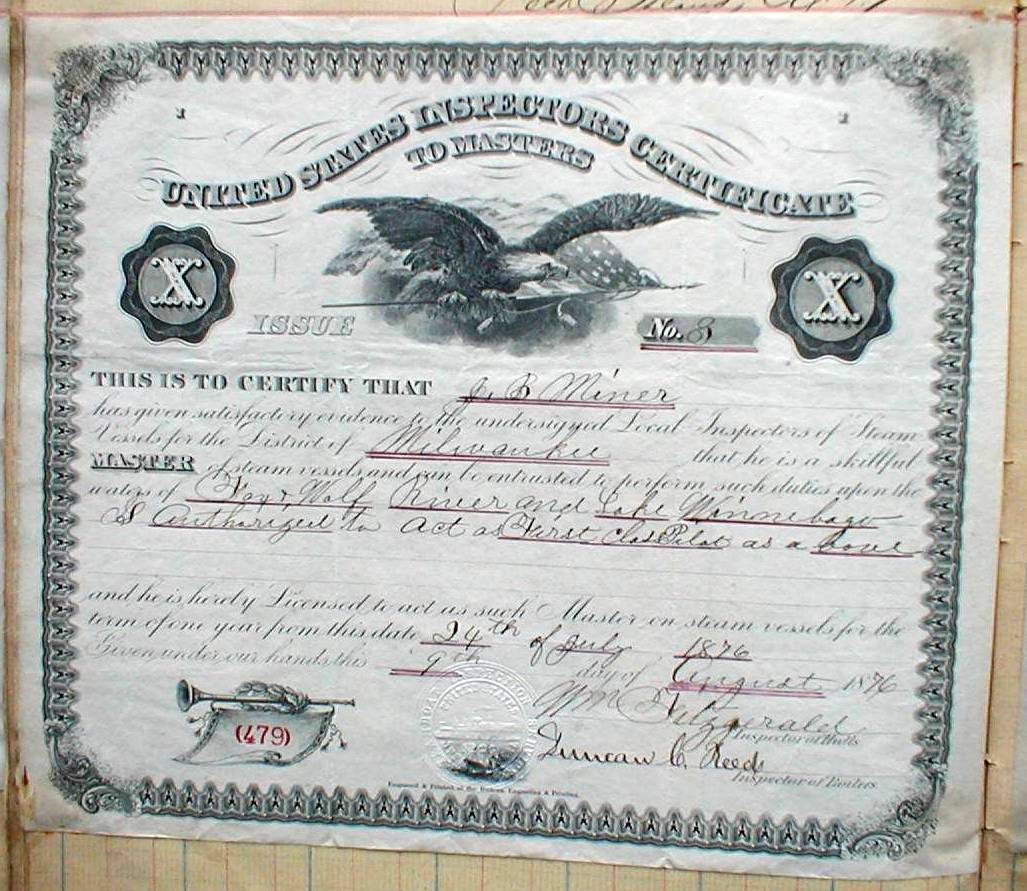 UNITED STATES INSPECTORS CERTIFICATE
TO MASTERS
X
X
ISSUE
No. 8
THIS IS TO CERTIFY THAT J. B Miner
has given satisfactory evidence to the undersigned Local Inspectors of Steam
Vessels for the District of Milwaukee that he is a skillful
MASTER of steam vessels and can be entrusted to perform such duties upon the
waters of Fox & Wolf River and Lake Winnebago
& Authorized to act as First Class Pilot as a bove
and he is hereby Licensed to act as such Master on steam vessels for the
term of one year from this date 24th of July 1876
Given under our hands this 9th day of August 1876
Wm Fitzgerald
Inspector of Hulls
(479)
Duncan C. Reed
Inspector of Boilers
Engraved & Printed at the Bureau, Engraving & Printing.